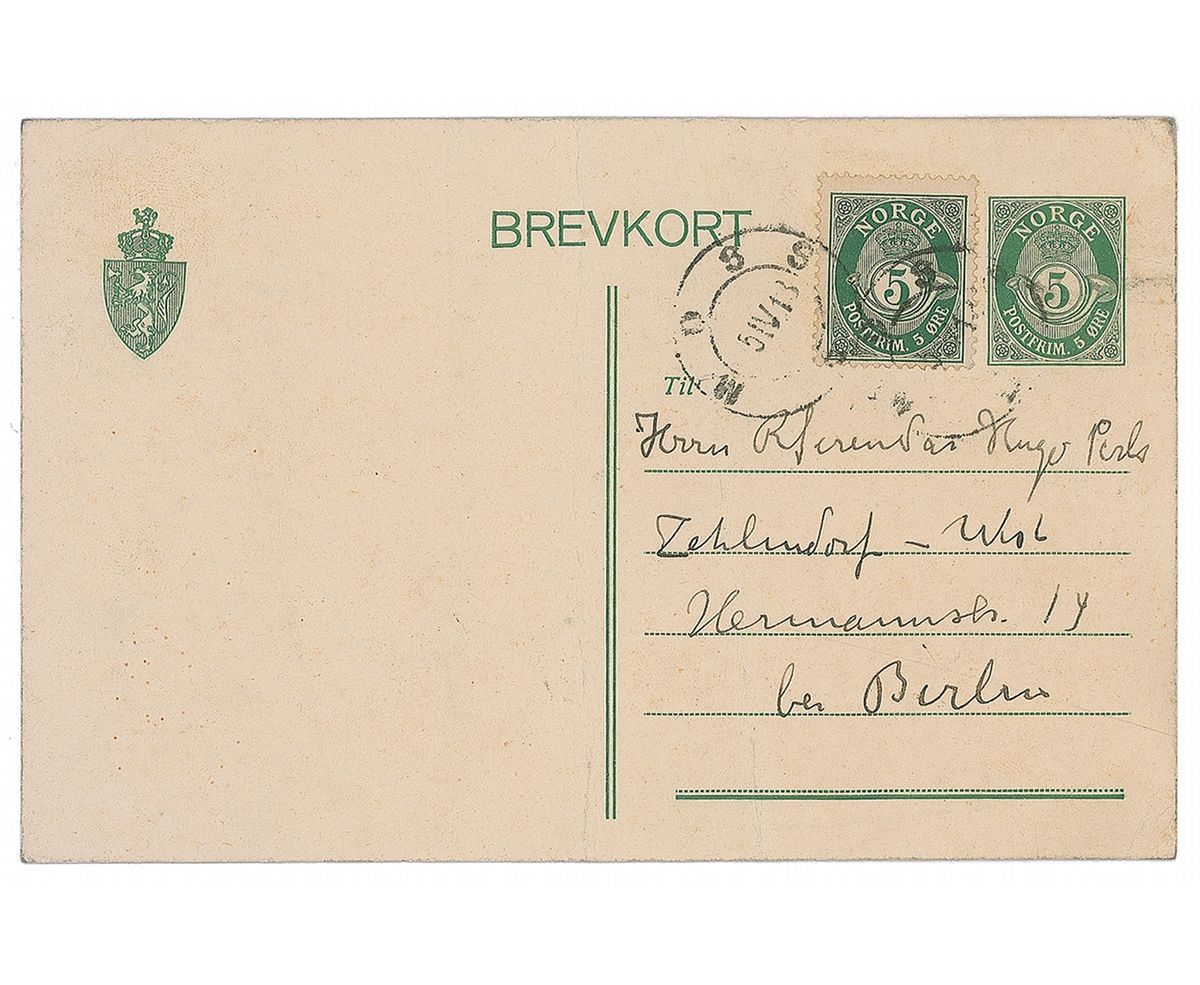 BREVKORT
NORGE
5
POSTFRIM. 5 ØRE
NORGE
5
POSTFRIM. 5 ØRE
MOSS
5 IV 13
Til
Herrn Referendar Hugo Perls
Zehlendorf – West
Hermannstr. 14
bei Berlin